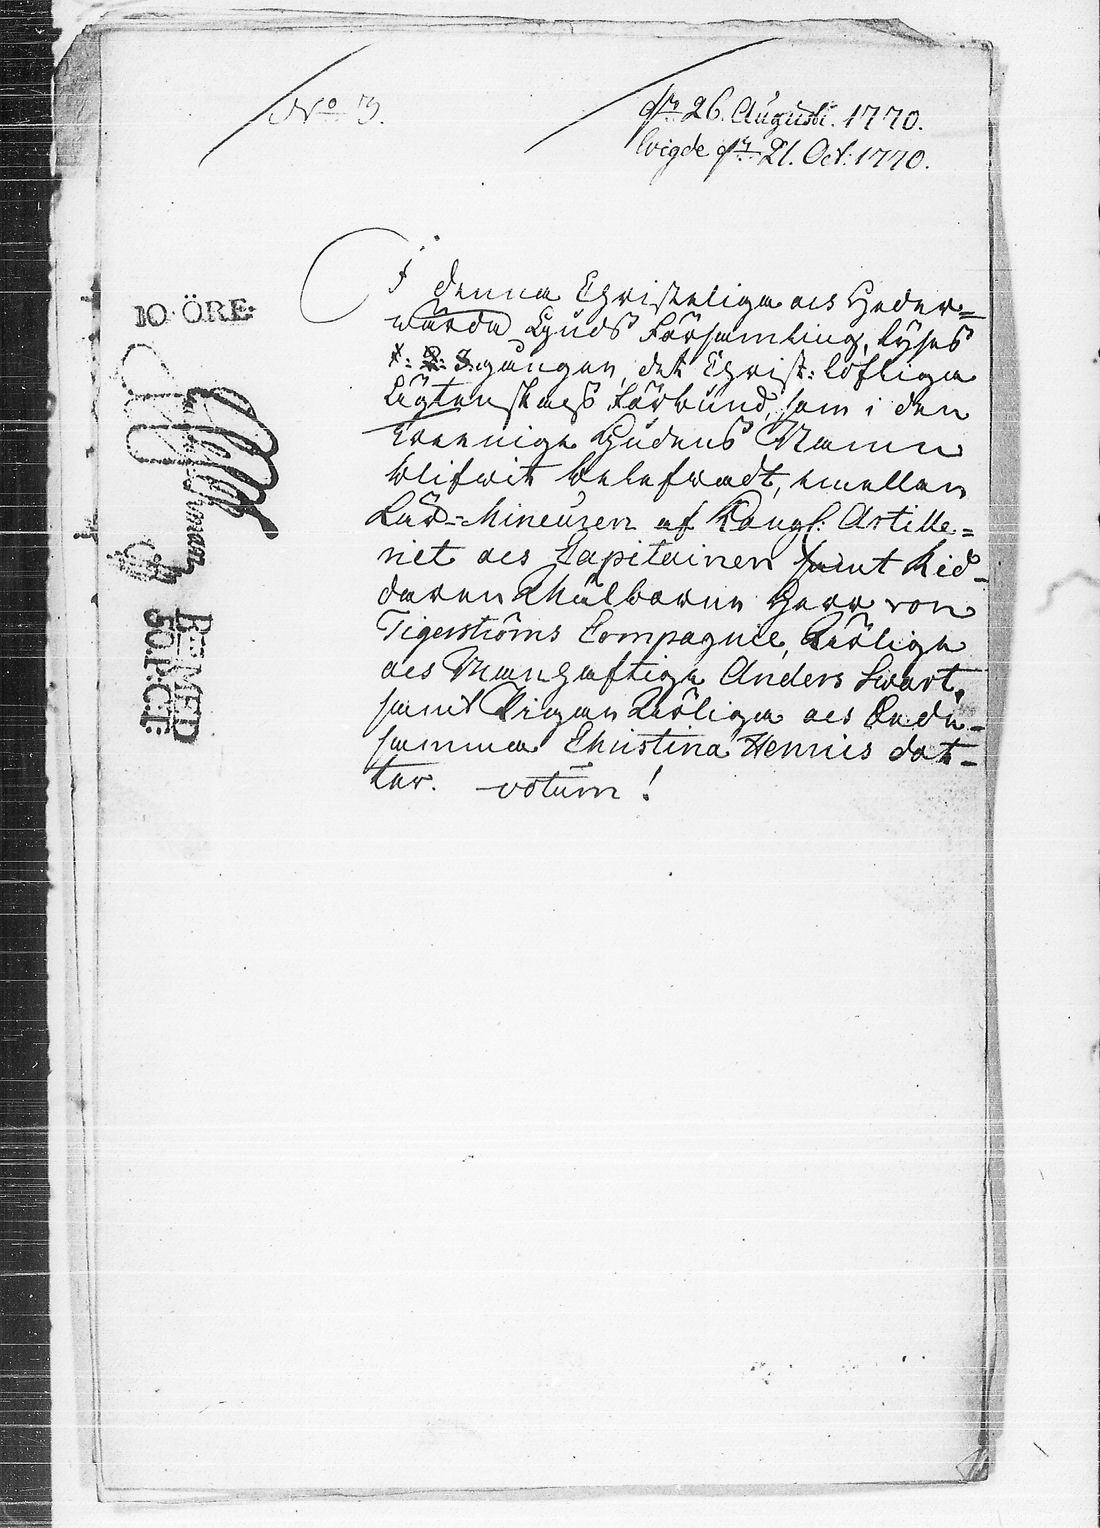 No 3.
d. 26. Augusti. 1770.
Wigde d. 21. Oct: 1770.
I denna Christeliga och Heder=
wärda Guds Församling, lyses
1: 2: 3: gången, det Christ: löfliga
Ägtenskaps Förbund, som i den
treenige Gudens Namn
blifwit belefwadt, emellan
Lär-Mineuren af Kongl: Artille=
riet och Capitainen samt Rid-
daren Wälborne Herr von
Tigerströms Compagnie, Ärlige
och Manhaftige Anders Swart,
samt Pigan Ärliga och Gudi-
samma Christina Hennis dot-
ter. votum!
10 ÖRE:
BEMED
50 P:CT: